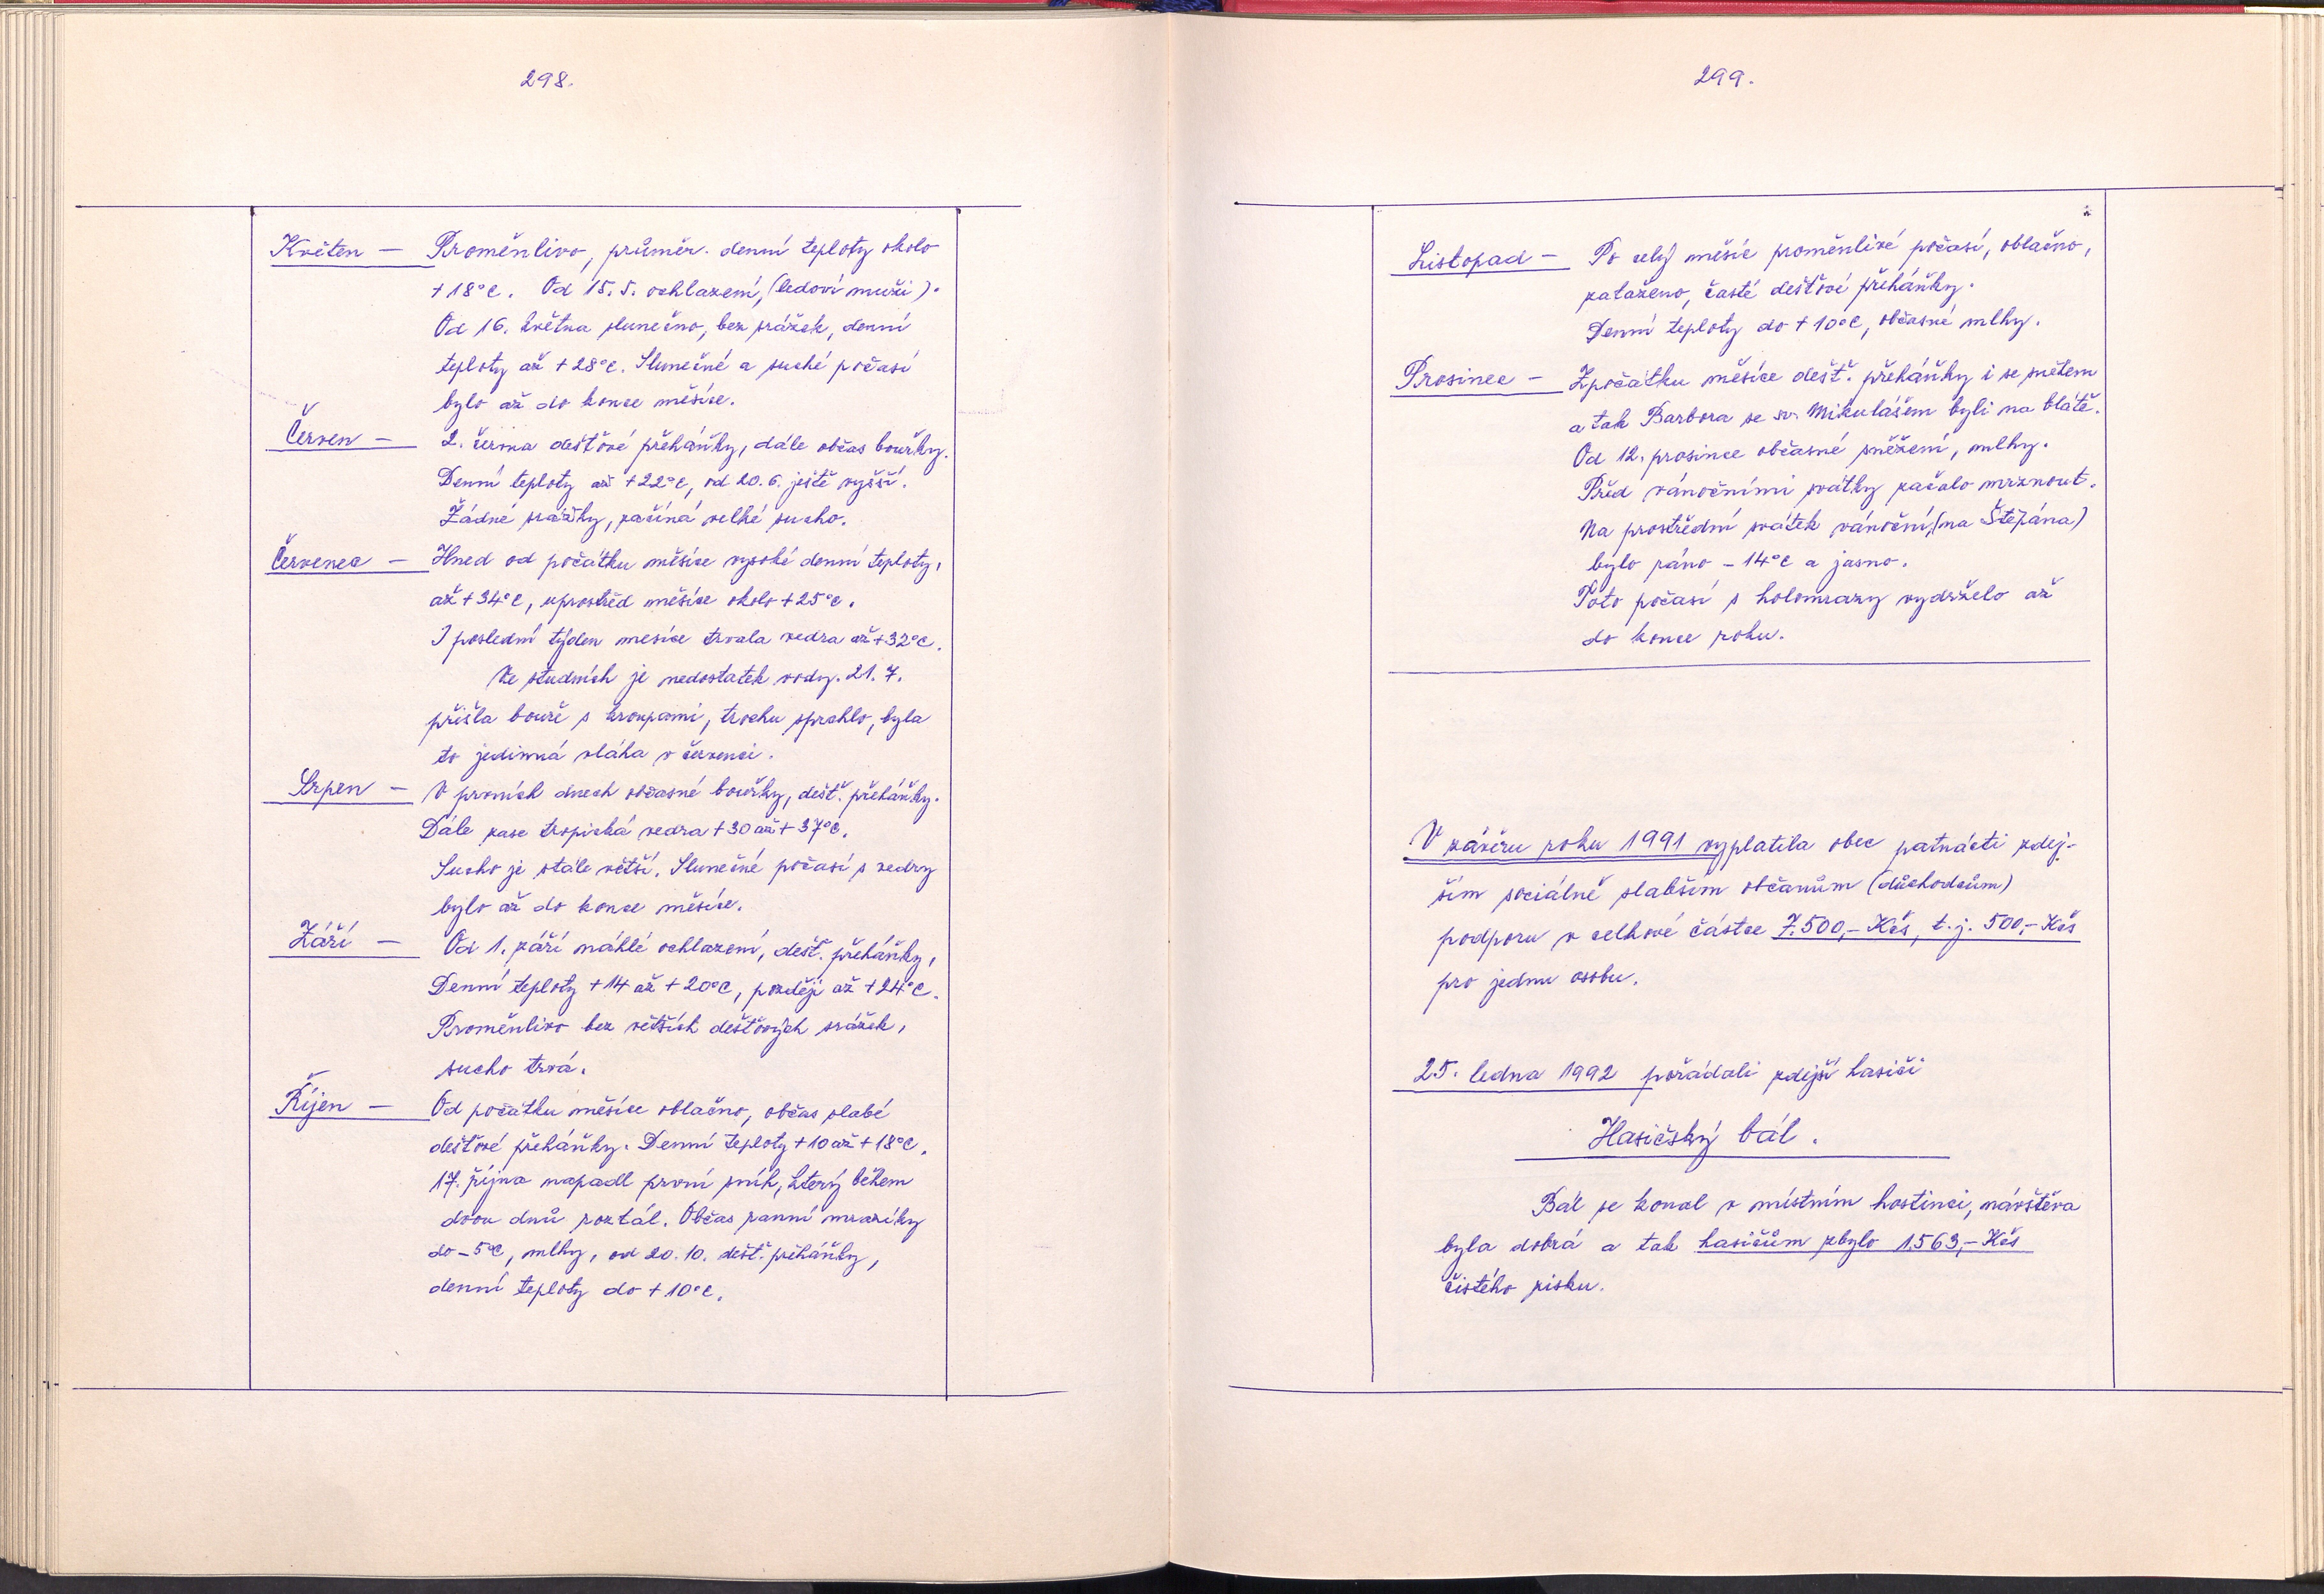 298.
Květen — Proměnlivo, průměr. denní teploty okolo
+18°C. Od 15.5. ochlazení, (ledoví muži).
Od 16. května slunečno, bez srážek, denní
teploty až +28°C. Slunečné a suché počasí
bylo až do konce měsíce.
Červen — 2. června dešťové přeháňky, dále občas bouřky.
Denní teploty až +22°C, od 20.6. ještě vyšší.
Žádné srážky, začíná velké sucho.
Červenec — Hned od počátku měsíce vysoké denní teploty,
až +34°C, uprostřed měsíce okolo +25°C.
I poslední týden mesíce trvala vedra až +32°C.
Ve studních je nedostatek vody. 21.7.
přišla bouře s kroupami, trochu sprchlo, byla
to jedinná vláha v červenci.
Srpen — V prvních dnech občasné bouřky, dešť. přeháňky.
Dále zase tropická vedra +30 až +37°C.
Sucho je stále větší. Slunečné počasí s vedry
bylo až do konce měsíce.
Září — Od 1. září náhlé ochlazení, dešť. přeháňky,
Denní teploty +14 až +20°C, později až +24°C.
Proměnlivo bez větších dešťových srážek,
sucho trvá.
Říjen — Od počátku měsíce oblačno, občas slabé
dešťové přeháňky. Denní teploty +10 až +18°C.
17. října napadl první sníh, který během
dvou dnů roztál. Občas ranní mrazíky
do -5°C, mlhy, od 20.10. dešť. přeháňky,
denní teploty do +10°C.
299.
Listopad — Po celý měsíc proměnlivé počasí, oblačno,
zataženo, časté dešťové přeháňky.
Denní teploty do +10°C, občasné mlhy.
Prosinec — Zpočátku měsíce dešť. přeháňky i se sněhem
a tak Barbora se sv. Mikulášem byli na blátě.
Od 12. prosince občasné sněžení, mlhy.
Před vánočními svátky začalo mrznout.
Na prostřední svátek vánoční, (na Štěpána)
bylo ráno -14°C a jasno.
Toto počasí s holomrazy vydrželo až
do konce roku.
V závěru roku 1991 vyplatila obec patnácti zdej-
ším sociálně slabším občanům (důchodcům)
podporu v celkové částce 7.500,- Kčs, t.j. 500,- Kčs
pro jednu osobu.
25. ledna 1992 pořádali zdejší hasiči
Hasičský bál.
Bál se konal v místním hostinci, návštěva
byla dobrá a tak hasičům zbylo 1.563,- Kčs
čistého zisku.